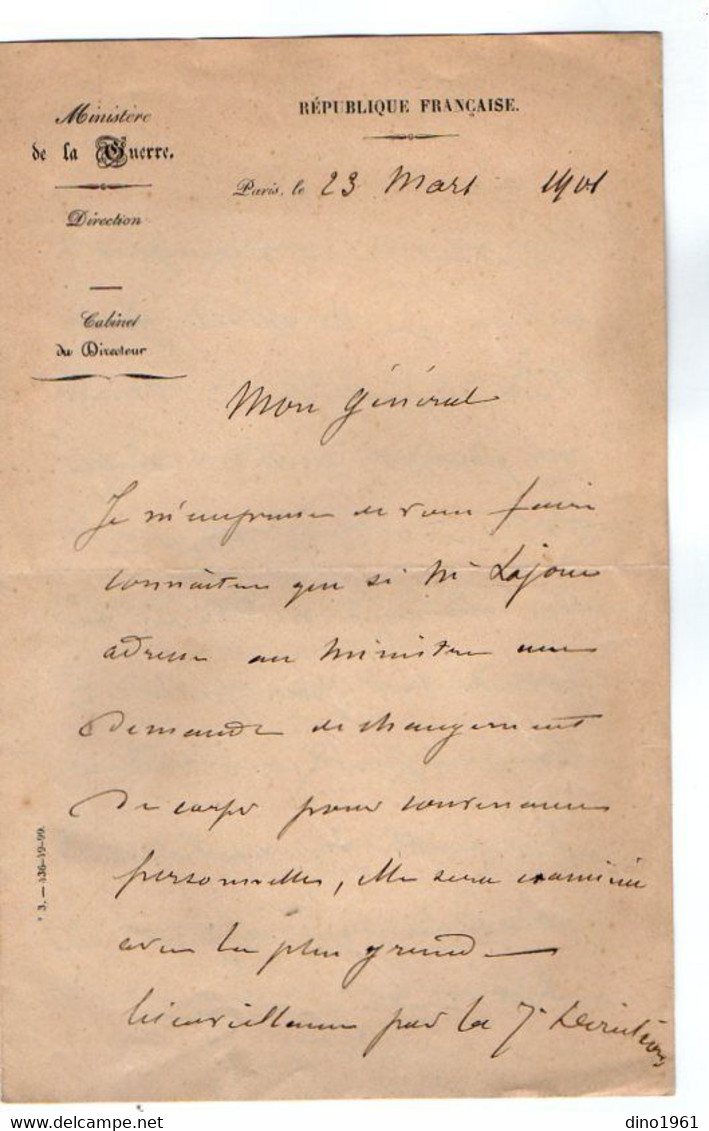 Ministère
de la Guerre.
RÉPUBLIQUE FRANÇAISE.
Paris, le 23 Mars 1901
Direction
Cabinet
du Directeur
Mon Général
Je m'empresse de vous faire
connaître que si Mr Lajoue
adresse au Ministre une
demande de changement
de corps pour convenances
personnelles, elle sera examinée
avec la plus grande
bienveillance par la 7e Direction
3. — 436-19-99.
dino1961